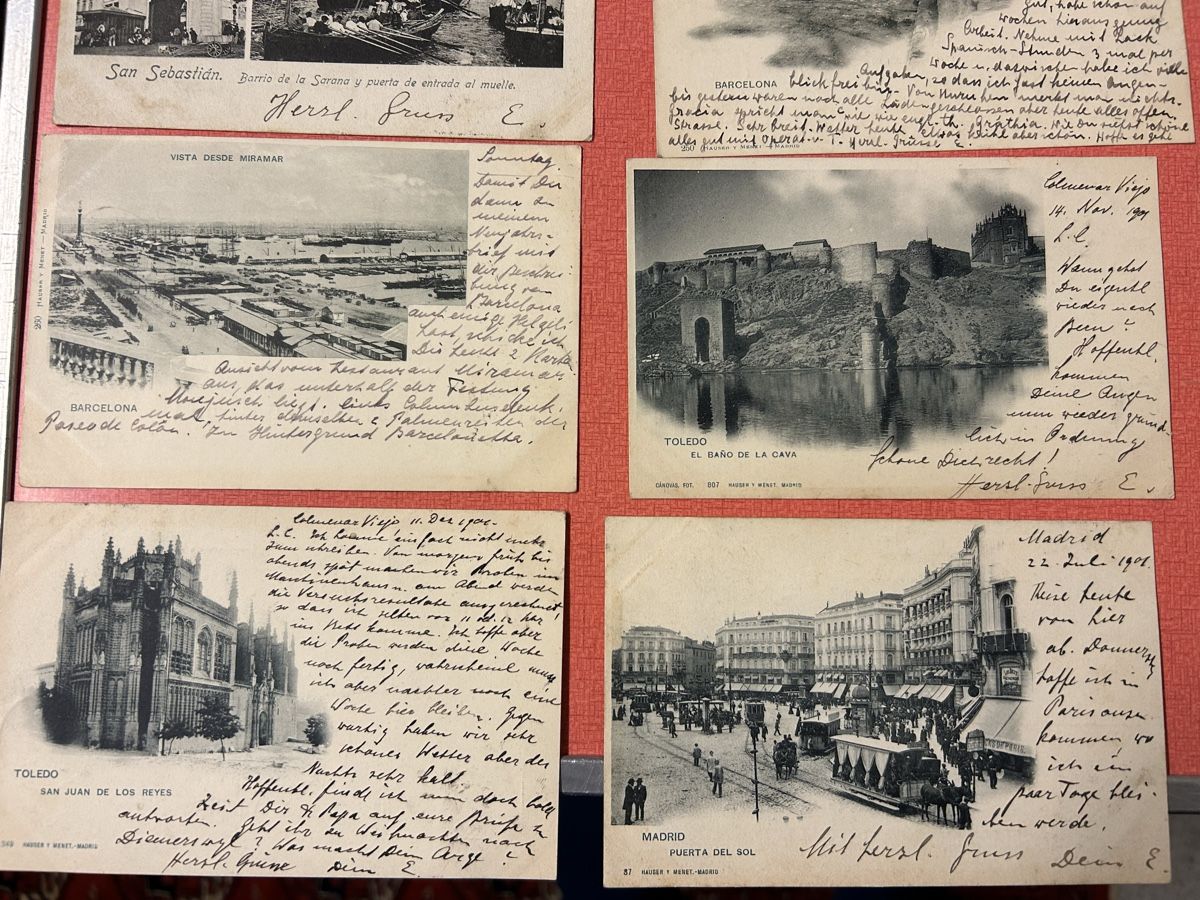 San Sebastián. Barrio de la Sarana y puerta de entrada al muelle.
Herzl. Gruss E.
gut, habe schon auf
wochen hieraus genug
Arbeit. Nehme mit Sack
Spanisch-Stunden 3 mal per
woche u. dazwischen habe ich viele
Aufgaben, so dass ich fast keinen Augen-
BARCELONA blick frei bin. Von Unruhen merkt man nichts.
bis gestern waren noch alle Läden geschlossen aber heute alles offen.
Gracia spricht man wie engl. th. Grathia.
Strasse. Sehr breit. Wetter heute etwas kühl aber schön. Hoffe es geht
alles gut mit Operat. v. T. Herzl. Grüsse E.
250 HAUSER Y MENET - MADRID
VISTA DESDE MIRAMAR
250 HAUSER Y MENET - MADRID
Sonntag
Damit Du
dann zu
meinem
Neujahrs-
brief mit
der Beschrei-
bung von
Barcelona
auch einige
hast, schicke ich
Dir heute 2 Karten
Ansicht vom Restaurant Miramar
aus, das unterhalb der Festung
Monjuich liegt. Links Columbusdenk-
BARCELONA mal, hinter demselben Palmenreihen der
Paseo de Colón. Im Hintergrund Barcelonetta.
Colmenar Viejo
14. Nov. 1901
L. C.
Wann gehst
Du eigentl.
wieder nach
Bern?
Hoffentl.
kommen
Deine Augen
nun wieder gründ-
lich in Ordnung
Schone Dich recht!
Herzl. Gruss E.
TOLEDO
EL BAÑO DE LA CAVA
CÁNOVAS, FOT. 807 HAUSER Y MENET. MADRID
Colmenar Viejo 11. Dez 1901.
L. C. Ich komme einfach nicht mehr
zum schreiben. Von morgens früh bis
abends spät machen wir Proben im
Maschinenhaus u. am Abend werden
die Versuchsresultate ausgerechnet
so dass ich selten vor 11 od. 12 Uhr
ins Bett komme. Ich hoffe aber
die Proben werden diese Woche
noch fertig, wahrscheinl. muss
ich aber nachher noch eine
Woche hier bleiben. Gegen
wärtig haben wir sehr
schönes Wetter aber des
Nachts sehr kalt
Hoffentl. finde ich nun doch bald
Zeit Dir & Papa auf eure Briefe zu
antworten. Geht ihr zu Weihnachten nach
Diemerswyl? Was macht Dein Auge?
Herzl. Grüsse Dein E.
TOLEDO
SAN JUAN DE LOS REYES
349 HAUSER Y MENET.-MADRID
Madrid
22. Juli 1901.
Reise heute
von hier
ab. Donnerst.
hoffe ich in
Paris anzu-
kommen wo
ich ein
paar Tage blei-
ben werde.
Mit herzl. Gruss Dein E
MADRID
PUERTA DEL SOL
87 HAUSER Y MENET.-MADRID